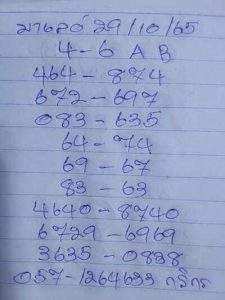 มาเลย์ 29/10/65
4-6 A B
464-874
672-697
083-635
64-74
69-67
83-63
4640-8740
6729-6969
3635-0838
057-1264633